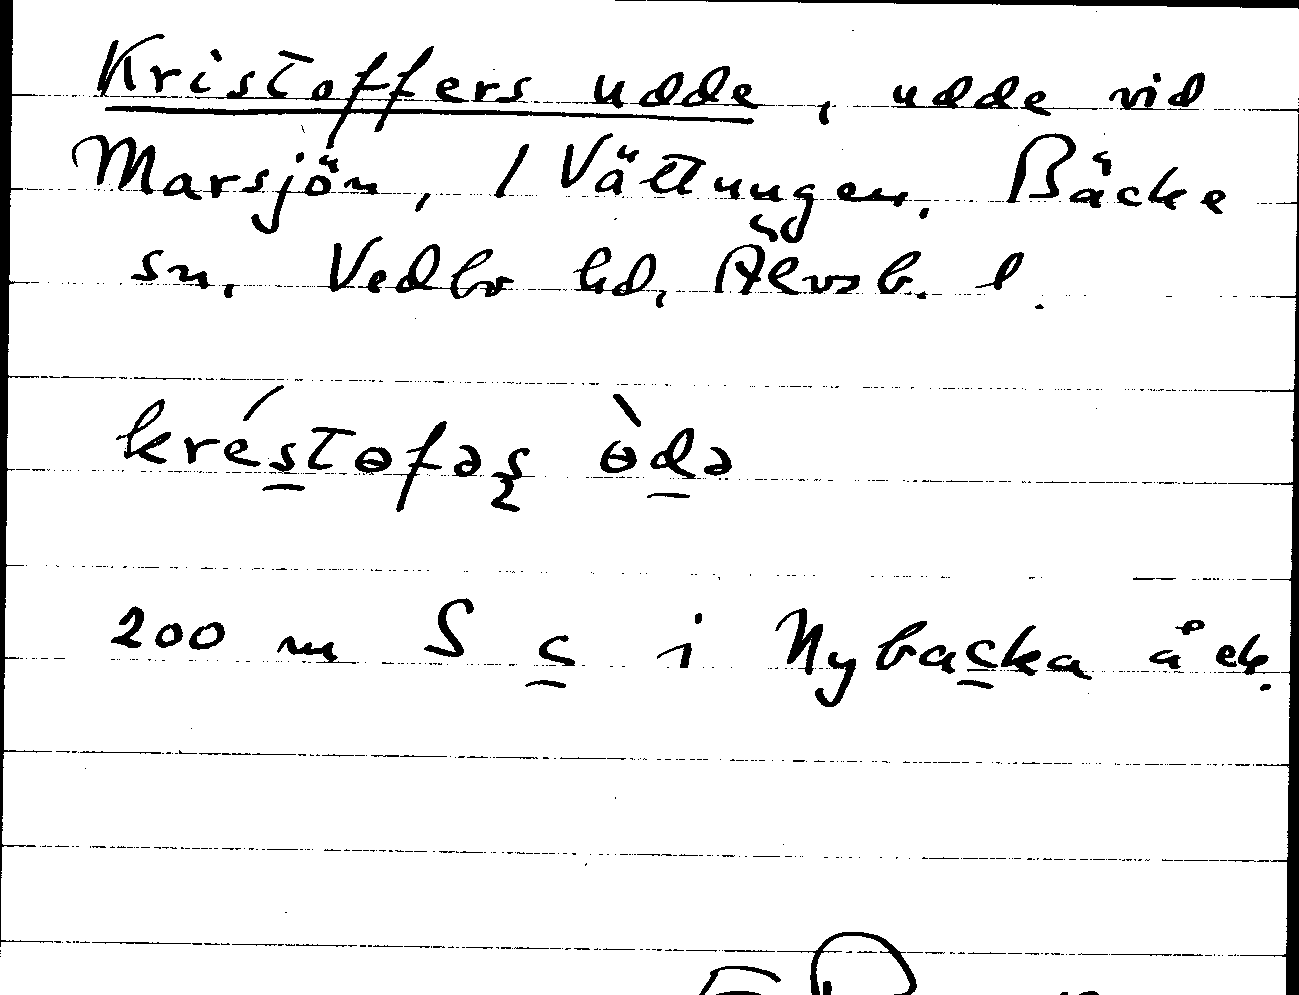 Kristoffers udde, udde vid
Marsjön, 1 Vättungen. Bäcke
sn, Vedbo hd, Älvsb. l.
kréstɵfəʂ ɵ̀də
200 m S c i Nybacka å ek.